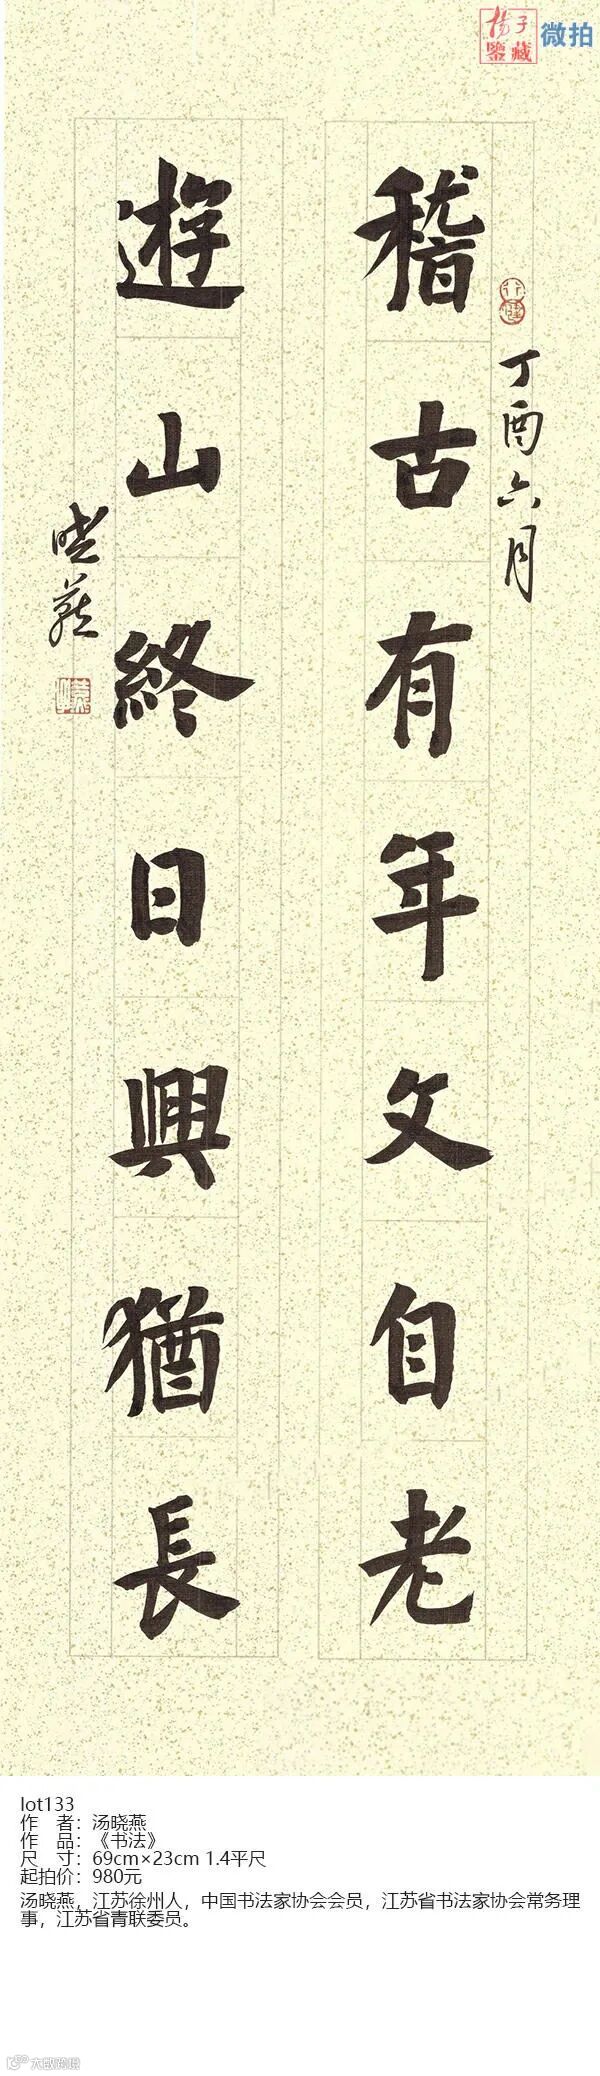 揚子
鑒藏
微拍
稽古有年文自老
遊山終日興猶長
丁酉六月
晓燕
lot133
作 者：汤晓燕
作 品：《书法》
尺 寸：69cm×23cm 1.4平尺
起拍价：980元
汤晓燕，江苏徐州人，中国书法家协会会员，江苏省书法家协会常务理
事，江苏省青联委员。